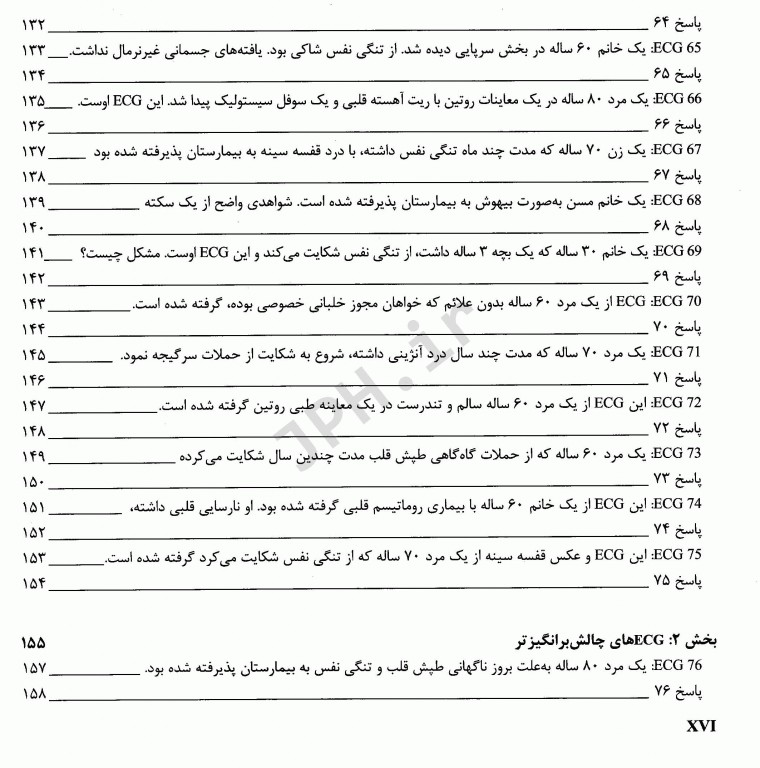 پاسخ ۶۴ ۱۳۲
ECG 65: یک خانم ۶۰ ساله در بخش سرپایی دیده شد. از تنگی نفس شاکی بود. یافته‌های جسمانی غیرنرمال نداشت. ۱۳۳
پاسخ ۶۵ ۱۳۴
ECG 66: یک مرد ۸۰ ساله در یک معاینات روتین با ریت آهسته قلبی و یک سوفل سیستولیک پیدا شد. این ECG اوست. ۱۳۵
پاسخ ۶۶ ۱۳۶
ECG 67: یک زن ۷۰ ساله که مدت چند ماه تنگی نفس داشته، با درد قفسه سینه به بیمارستان پذیرفته شده بود ۱۳۷
پاسخ ۶۷ ۱۳۸
ECG 68: یک خانم مسن به‌صورت بیهوش به بیمارستان پذیرفته شده است. شواهدی واضح از یک سکته ۱۳۹
پاسخ ۶۸ ۱۴۰
ECG 69: یک خانم ۳۰ ساله که یک بچه ۳ ساله داشت، از تنگی نفس شکایت می‌کند و این ECG اوست. مشکل چیست؟ ۱۴۱
پاسخ ۶۹ ۱۴۲
ECG 70: ECG از یک مرد ۶۰ ساله بدون علائم که خواهان مجوز خلبانی خصوصی بوده، گرفته شده است. ۱۴۳
پاسخ ۷۰ ۱۴۴
ECG 71: یک مرد ۷۰ ساله که مدت چند سال درد آنژینی داشته، شروع به شکایت از حملات سرگیجه نمود. ۱۴۵
پاسخ ۷۱ ۱۴۶
ECG 72: این ECG از یک مرد ۶۰ ساله سالم و تندرست در یک معاینه طبی روتین گرفته شده است. ۱۴۷
پاسخ ۷۲ ۱۴۸
ECG 73: یک مرد ۶۰ ساله که از حملات گاه‌گاهی طپش قلب مدت چندین سال شکایت می‌کرده ۱۴۹
پاسخ ۷۳ ۱۵۰
ECG 74: این ECG از یک خانم ۶۰ ساله با بیماری روماتیسم قلبی گرفته شده بود. او نارسایی قلبی داشته، ۱۵۱
پاسخ ۷۴ ۱۵۲
ECG 75: این ECG و عکس قفسه سینه از یک مرد ۷۰ ساله که از تنگی نفس شکایت می‌کرد گرفته شده است. ۱۵۳
پاسخ ۷۵ ۱۵۴
بخش ۲: ECGهای چالش‌برانگیزتر ۱۵۵
ECG 76: یک مرد ۸۰ ساله به‌علت بروز ناگهانی طپش قلب و تنگی نفس به بیمارستان پذیرفته شده بود. ۱۵۷
پاسخ ۷۶ ۱۵۸
XVI
JPH.ir